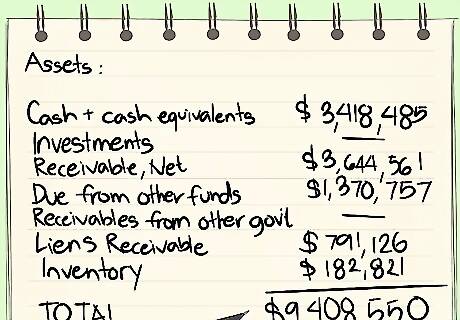 Assets:
Cash + cash equivalents $ 3,418,485
Investments —
Receivable, Net $3,644,561
Due from other funds $1,370,757
Receivables from other govil —
Liens Receivable $ 791,126
Inventory $ 182,821
TOTAL $9,408,550